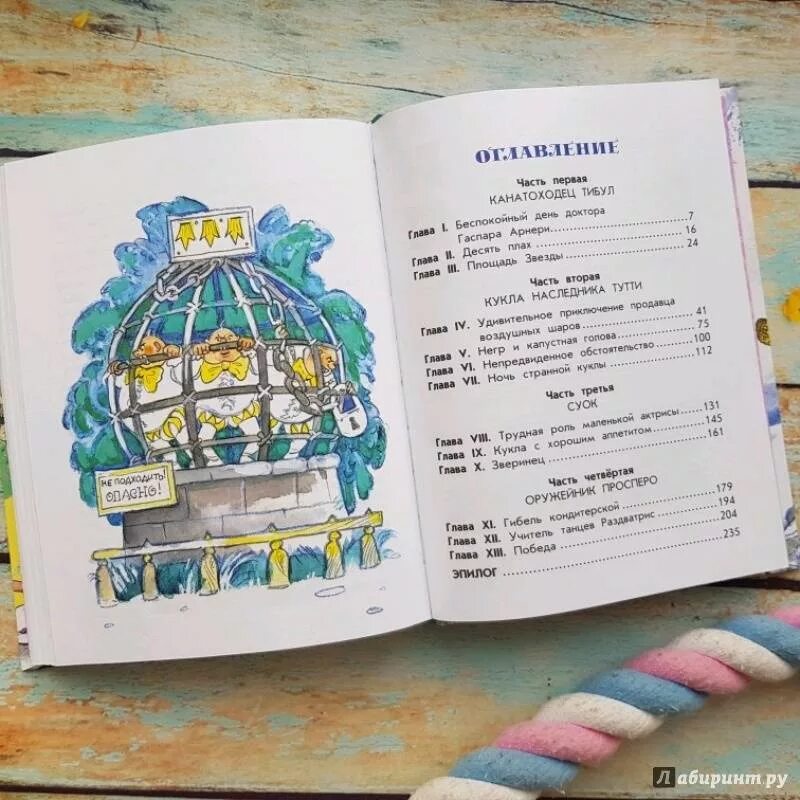 НЕ ПОДХОДИТЬ!
ОПАСНО!
ОГЛАВЛЕНИЕ
Часть первая
КАНАТОХОДЕЦ ТИБУЛ
Глава I. Беспокойный день доктора
Гаспара Арнери 7
Глава II. Десять плах 16
Глава III. Площадь Звезды 24
Часть вторая
КУКЛА НАСЛЕДНИКА ТУТТИ
Глава IV. Удивительное приключение продавца
воздушных шаров 41
Глава V. Негр и капустная голова 75
Глава VI. Непредвиденное обстоятельство 100
Глава VII. Ночь странной куклы 112
Часть третья
СУОК
Глава VIII. Трудная роль маленькой актрисы 131
Глава IX. Кукла с хорошим аппетитом 145
Глава X. Зверинец 161
Часть четвёртая
ОРУЖЕЙНИК ПРОСПЕРО
Глава XI. Гибель кондитерской 179
Глава XII. Учитель танцев Раздватрис 194
Глава XIII. Победа 204
ЭПИЛОГ 235
Лабиринт.ру